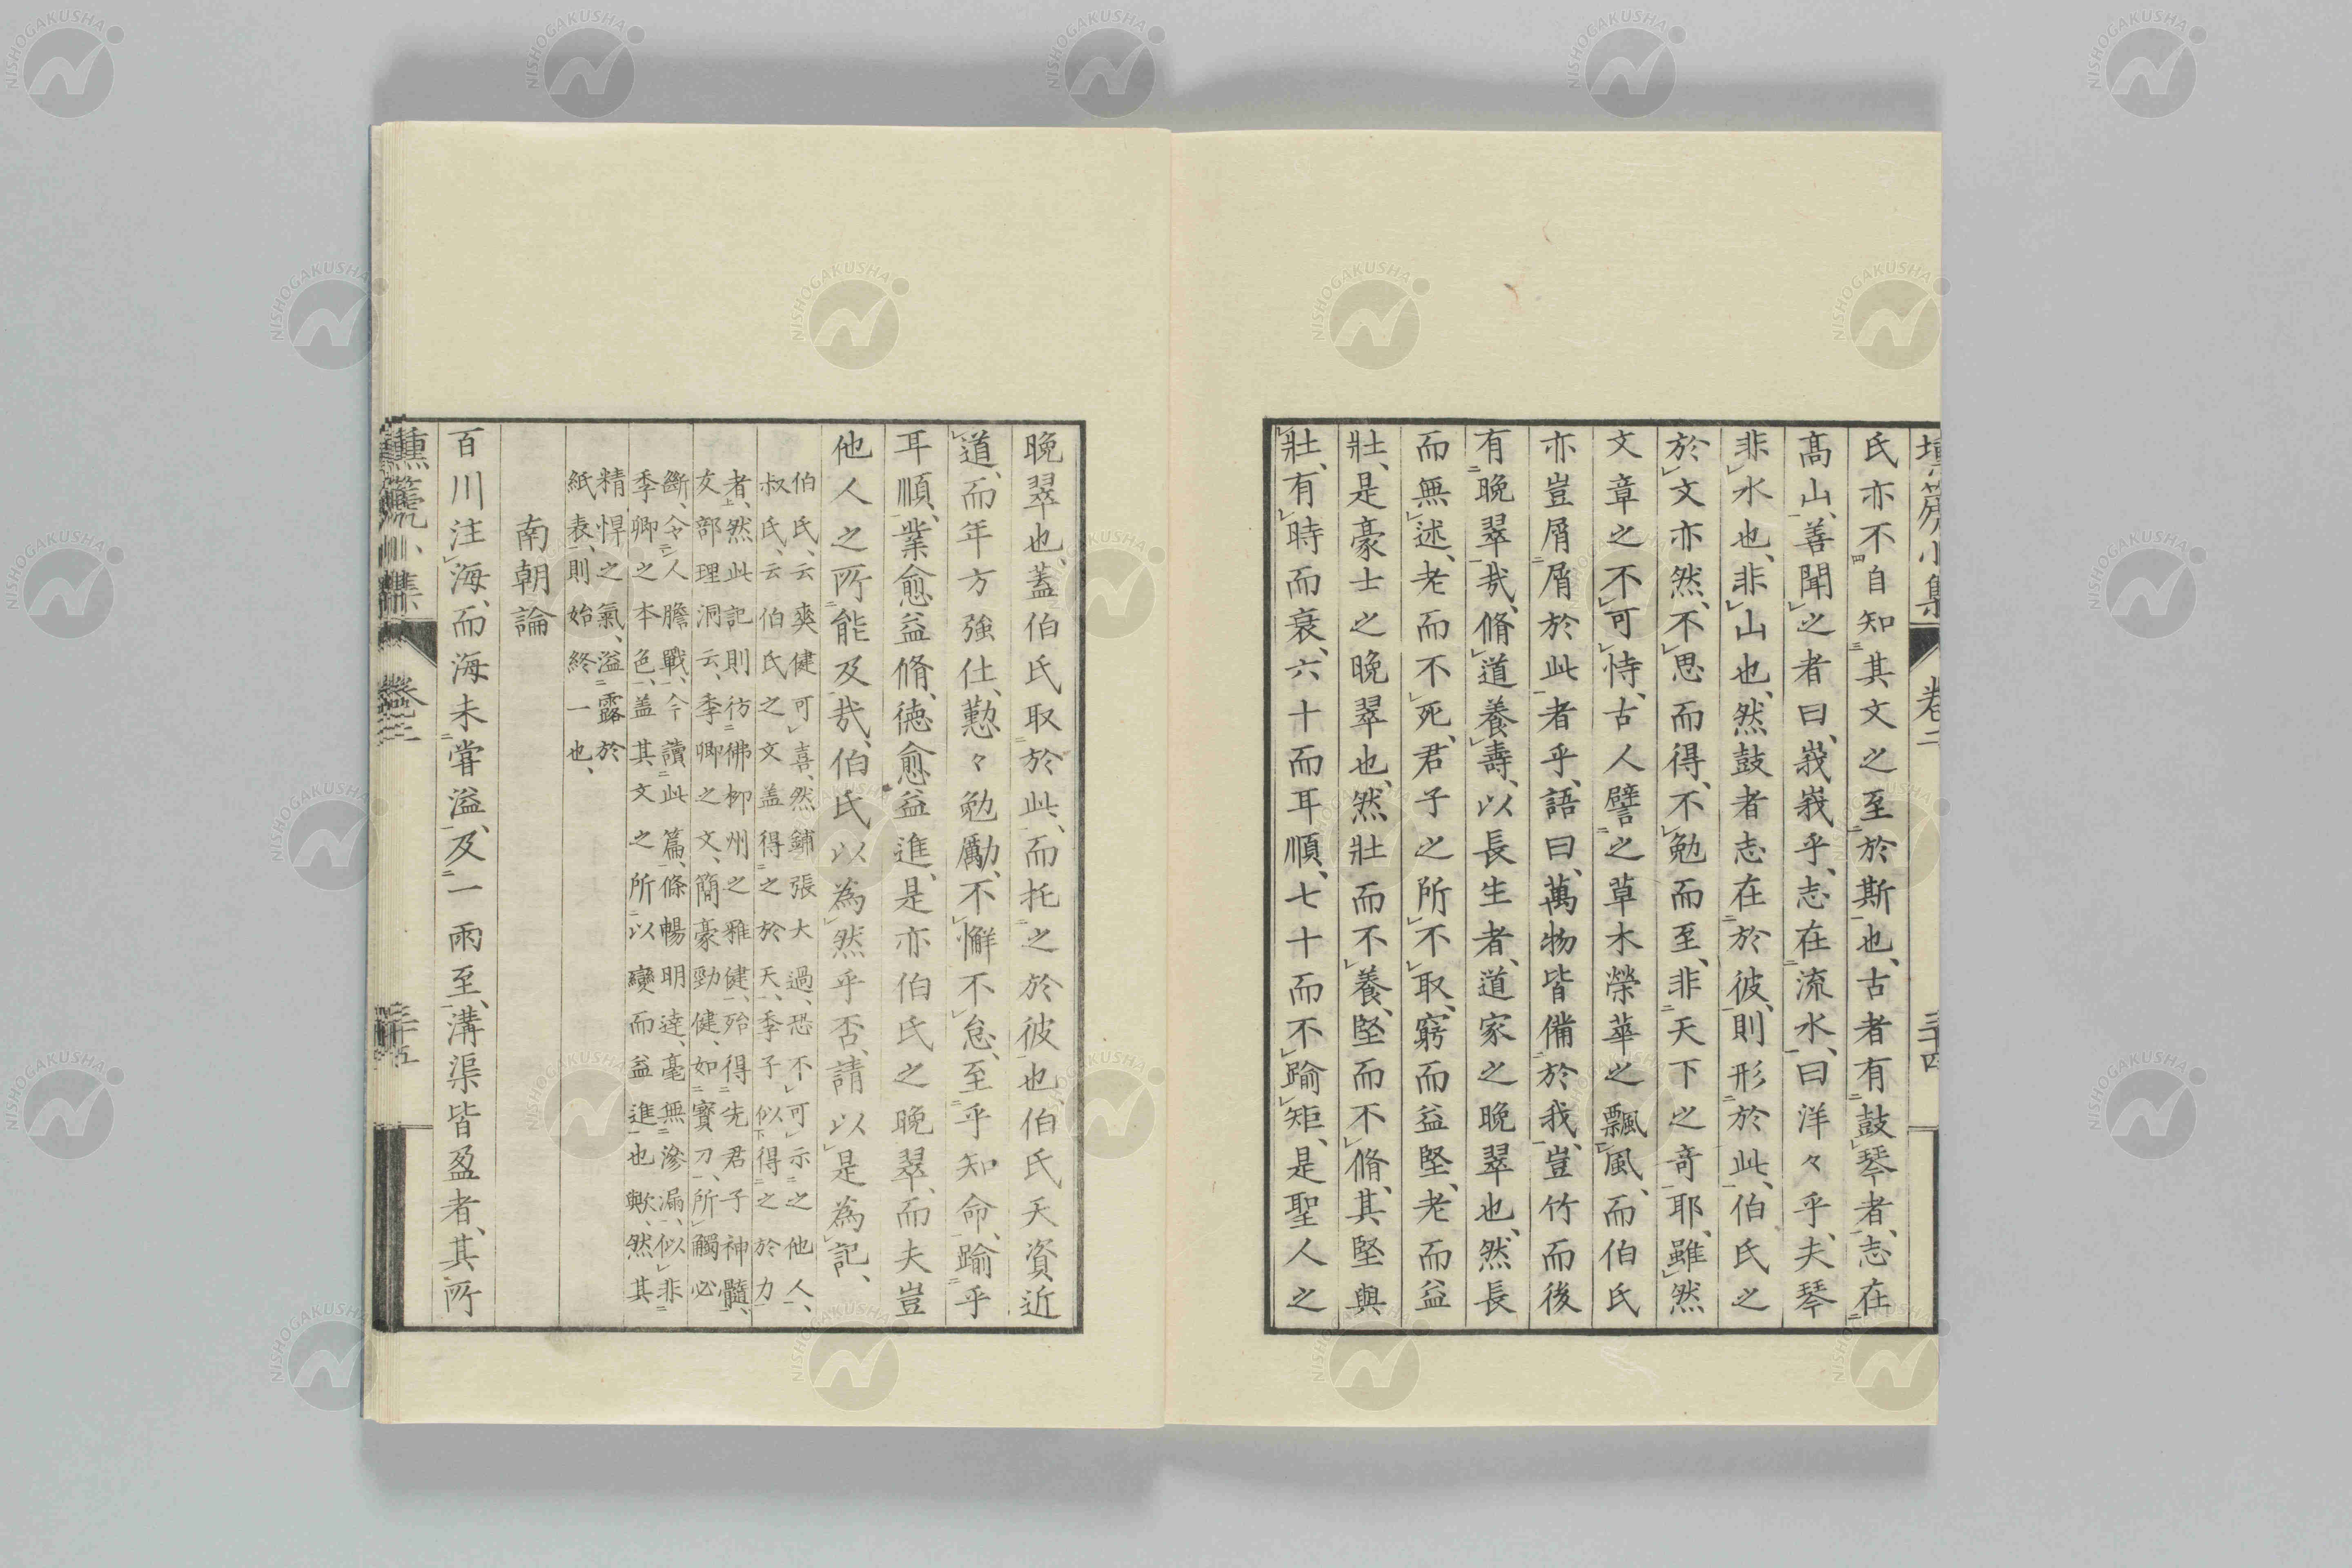 壎箎小集 卷二 三十四
氏亦不自知其文之至於斯也、古者有鼓琴者、志在
高山、善聞之者曰、峩峩乎、志在流水、曰洋々乎、夫琴
非水也、非山也、然鼓者志在於彼、則形於此、伯氏之
於文亦然、不思而得、不勉而至、非天下之奇耶、雖然
文章之不可恃、古人譬之草木榮華之飄風、而伯氏
亦豈屑屑於此者乎、語曰、萬物皆備於我、豈竹而後
有晚翠哉、脩道養壽、以長生者、道家之晚翠也、然長
而無述、老而不死、君子之所不取、窮而益堅、老而益
壯、是豪士之晚翠也、然壯而不養、堅而不脩、其堅與
壯、有時而衰、六十而耳順、七十而不踰矩、是聖人之
晚翠也、蓋伯氏取於此、而托之於彼也、伯氏天資近
道、而年方強仕、懃々勉勵、不懈不怠、至乎知命、踰乎
耳順、業愈益脩、德愈益進、是亦伯氏之晚翠、而夫豈
他人之所能及哉、伯氏以為然乎否、請以是為記、
伯氏、云爽健可喜、然鋪張大過、恐不可示之他人、
叔氏、云伯氏之文盖得之於天、季子似得之於力
者、然此記則彷彿柳州之雅健、殆得先君子神髓、
友部理洞云、季卿之文、簡豪勁健、如寶刀、所觸必
斷、令人膽戰、今讀此篇、條暢明達、毫無滲漏、似非
季卿之本色、盖其文之所以變而益進也歟、然其
精悍之氣、溢露於
紙表、則始終一也、
南朝論
百川注海、而海未甞溢、及一雨至、溝渠皆盈者、其所